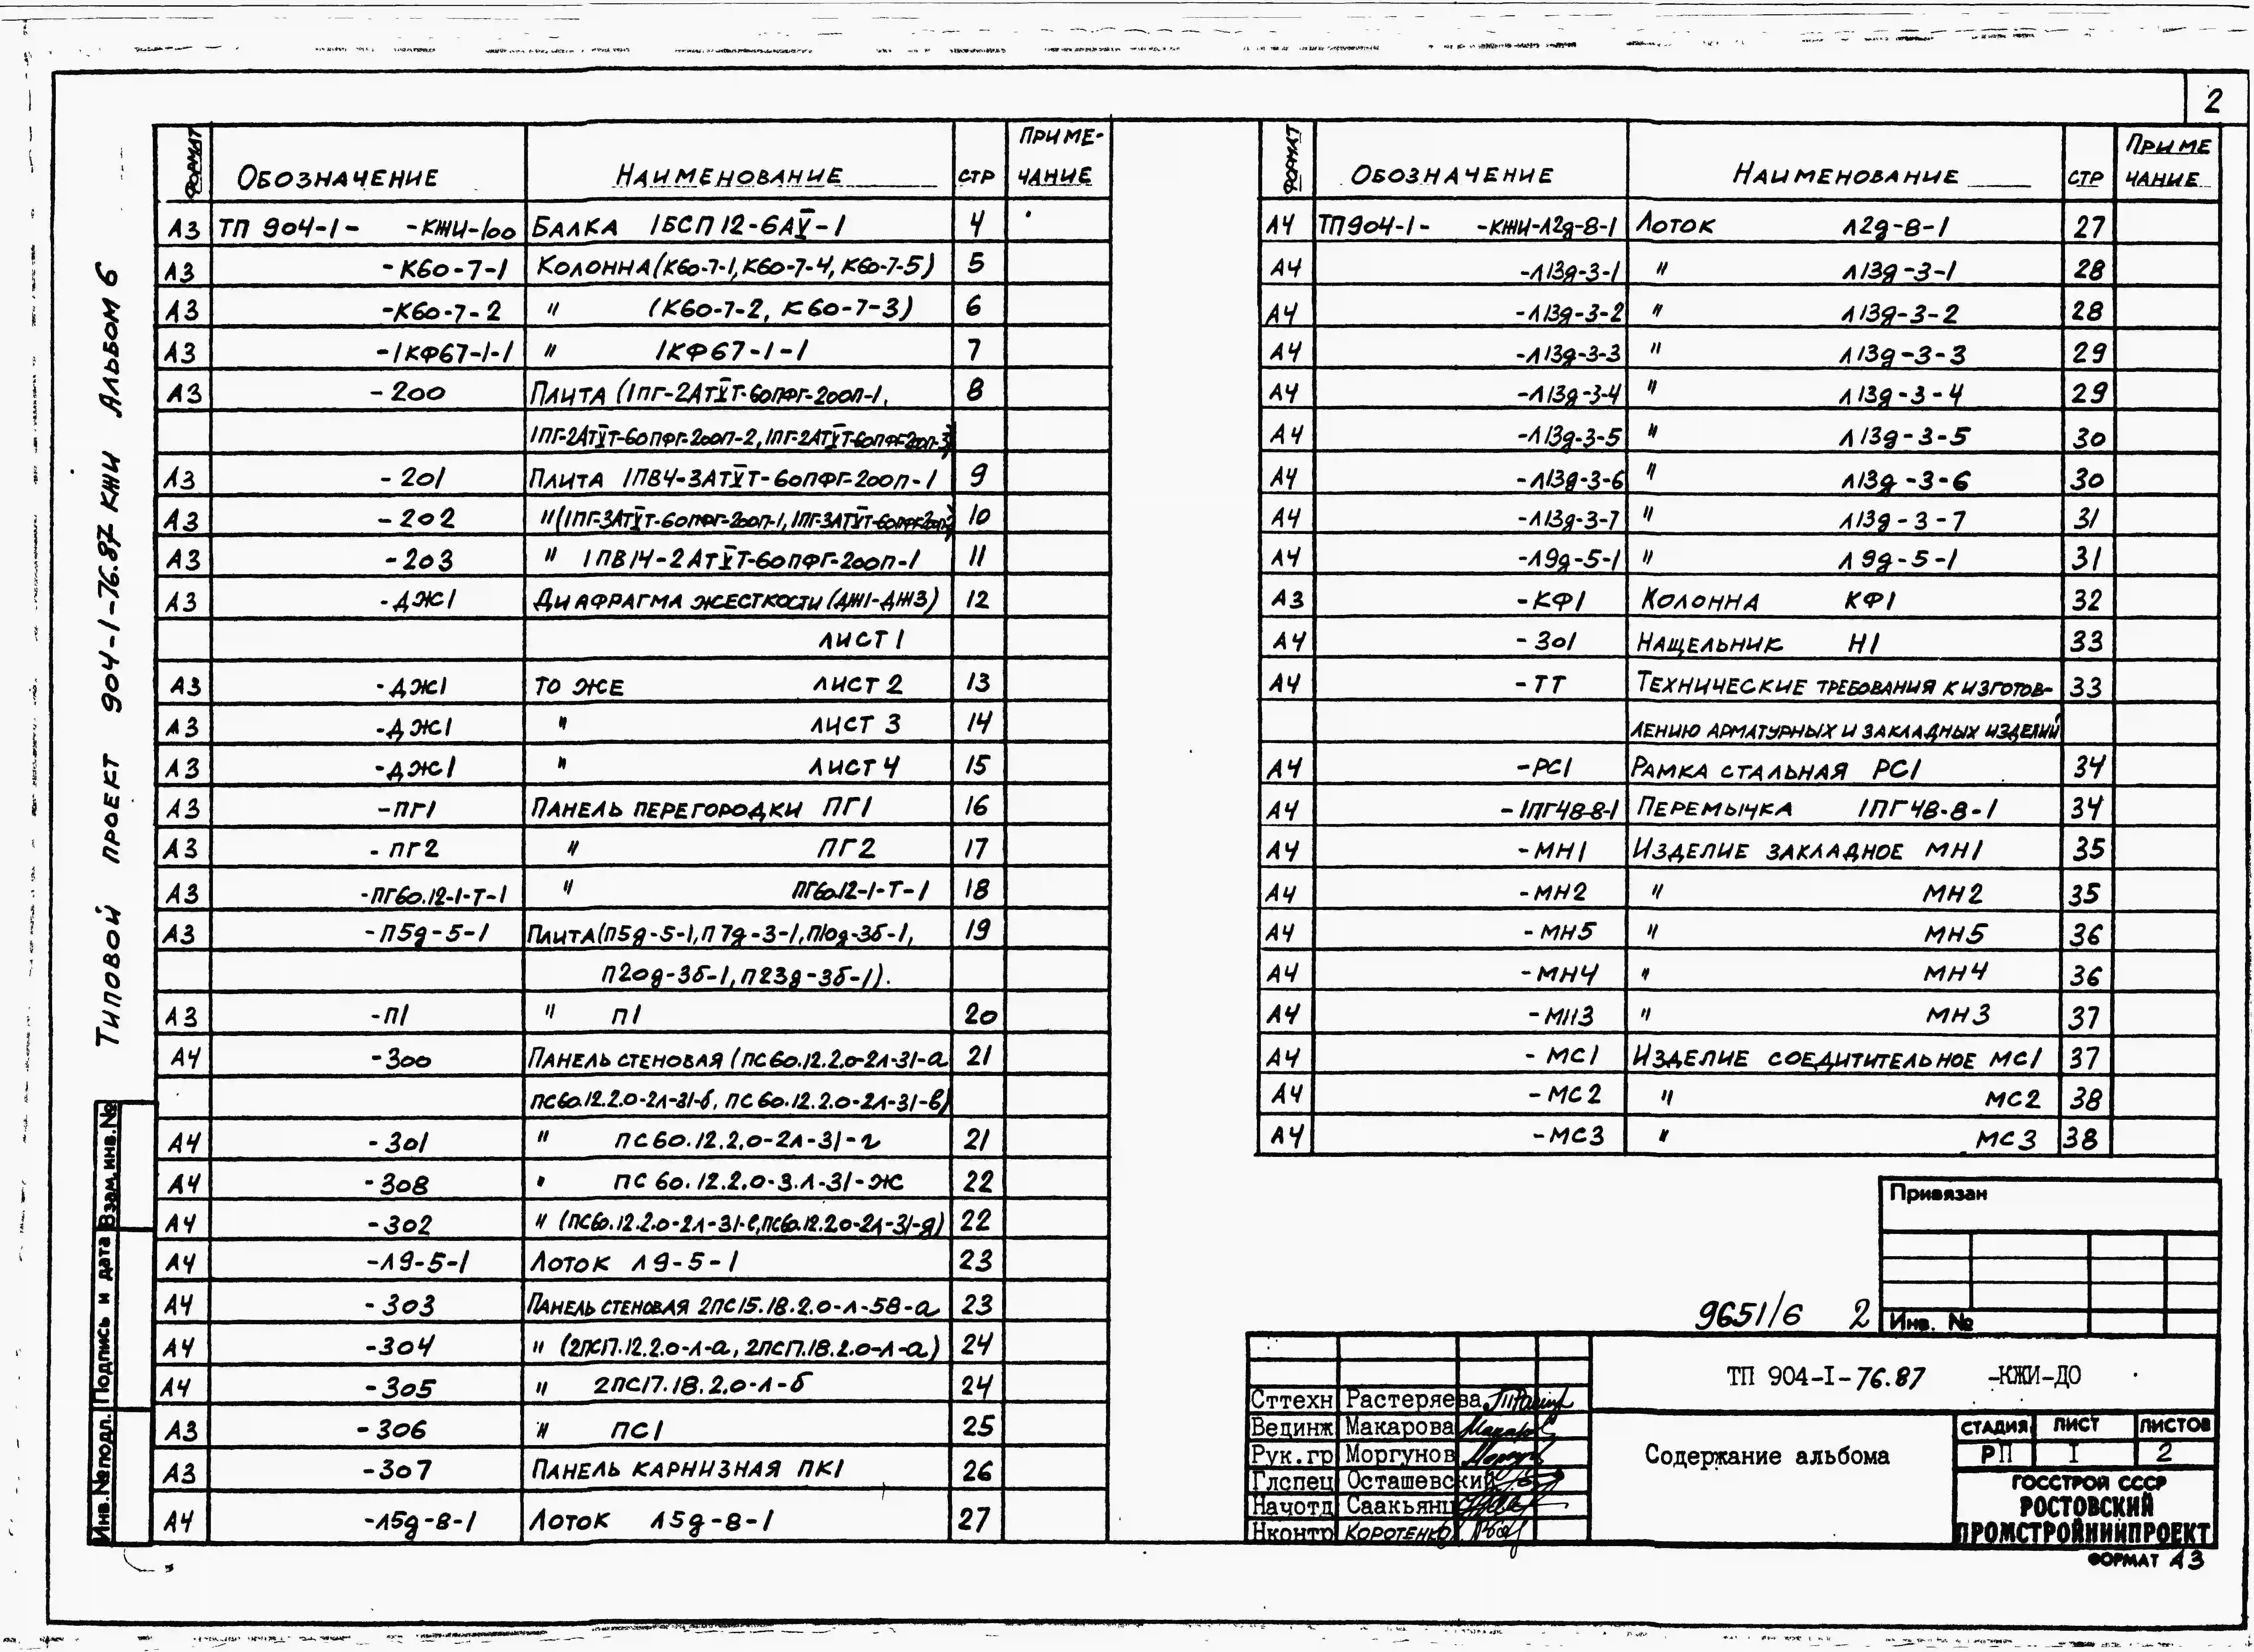 2
Типовой проект 904-1-76.87 КЖИ Альбом 6
Формат Обозначение Наименование стр Приме-
чание
А3 ТП 904-1- -КЖИ-100 Балка 1БСП12-6АV-1 4
А3 -К60-7-1 Колонна (К60-7-1, К60-7-4, К60-7-5) 5
А3 -К60-7-2 " (К60-7-2, К60-7-3) 6
А3 -1КФ67-1-1 " 1КФ67-1-1 7
А3 -200 Плита (1ПГ-2АтVТ-60ПФГ-200П-1, 8
1ПГ-2АтVТ-60ПФГ-200П-2, 1ПГ-2АтVТ-60ПФГ-200П-3)
А3 -201 Плита 1ПВ4-3АтVТ-60ПФГ-200П-1 9
А3 -202 " (1ПГ-3АтVТ-60ПФГ-200П-1, 1ПГ-3АтVТ-60ПФГ-200П-2) 10
А3 -203 " 1ПВ14-2АтVТ-60ПФГ-200П-1 11
А3 -ДЖ1 Диафрагма жесткости (ДЖ1-ДЖ3) 12
лист 1
А3 -ДЖ1 То же лист 2 13
А3 -ДЖ1 " лист 3 14
А3 -ДЖ1 " лист 4 15
А3 -ПГ1 Панель перегородки ПГ1 16
А3 -ПГ2 " ПГ2 17
А3 -ПГ60.12-1-Т-1 " ПГ60.12-1-Т-1 18
А3 -П5д-5-1 Плита (П5д-5-1, П7д-3-1, П10д-3б-1, 19
П20д-3б-1, П23д-3б-1).
А3 -П1 " П1 20
А4 -300 Панель стеновая (ПС60.12.2.0-2л-31-а 21
ПС60.12.2.0-2л-31-б, ПС60.12.2.0-2л-31-в)
А4 -301 " ПС60.12.2.0-2л-31-г 21
А4 -308 " ПС60.12.2.0-3.л-31-ж 22
А4 -302 " (ПС60.12.2.0-2л-31-е, ПС60.12.2.0-2л-31-д) 22
А4 -Л9-5-1 Лоток Л9-5-1 23
А4 -303 Панель стеновая 2ПС15.18.2.0-л-58-а 23
А4 -304 " (2ПСП.12.2.0-л-а, 2ПСП.18.2.0-л-а) 24
А4 -305 " 2ПС17.18.2.0-л-б 24
А3 -306 " ПС1 25
А3 -307 Панель карнизная ПК1 26
А4 -Л5д-8-1 Лоток Л5д-8-1 27
Формат Обозначение Наименование стр Приме
чание
А4 ТП904-1- -КЖИ-Л2д-8-1 Лоток Л2д-8-1 27
А4 -Л13д-3-1 " Л13д-3-1 28
А4 -Л13д-3-2 " Л13д-3-2 28
А4 -Л13д-3-3 " Л13д-3-3 29
А4 -Л13д-3-4 " Л13д-3-4 29
А4 -Л13д-3-5 " Л13д-3-5 30
А4 -Л13д-3-6 " Л13д-3-6 30
А4 -Л13д-3-7 " Л13д-3-7 31
А4 -Л9д-5-1 " Л9д-5-1 31
А3 -КФ1 Колонна КФ1 32
А4 -301 Нащельник Н1 33
А4 -ТТ Технические требования к изготов- 33
лению арматурных и закладных изделий
А4 -РС1 Рамка стальная РС1 34
А4 -1ПГ48-8-1 Перемычка 1ПГ48-8-1 34
А4 -МН1 Изделие закладное МН1 35
А4 -МН2 " МН2 35
А4 -МН5 " МН5 36
А4 -МН4 " МН4 36
А4 -МН3 " МН3 37
А4 -МС1 Изделие соедитительное МС1 37
А4 -МС2 " МС2 38
А4 -МС3 " МС3 38
Привязан
Инв. №
9651/6 2
ТП 904-I-76.87 -КЖИ-ДО
Сттехн Растеряева
Вединж Макарова
Рук.гр Моргунов
Глспец Осташевский
Начотд Саакьянц
Нконтр Коротенко
Содержание альбома
СТАДИЯ ЛИСТ ЛИСТОВ
РП I 2
ГОССТРОЙ СССР
РОСТОВСКИЙ
ПРОМСТРОЙНИИПРОЕКТ
ФОРМАТ А3
Взам.инв.№
Подпись и дата
Инв.№подл.